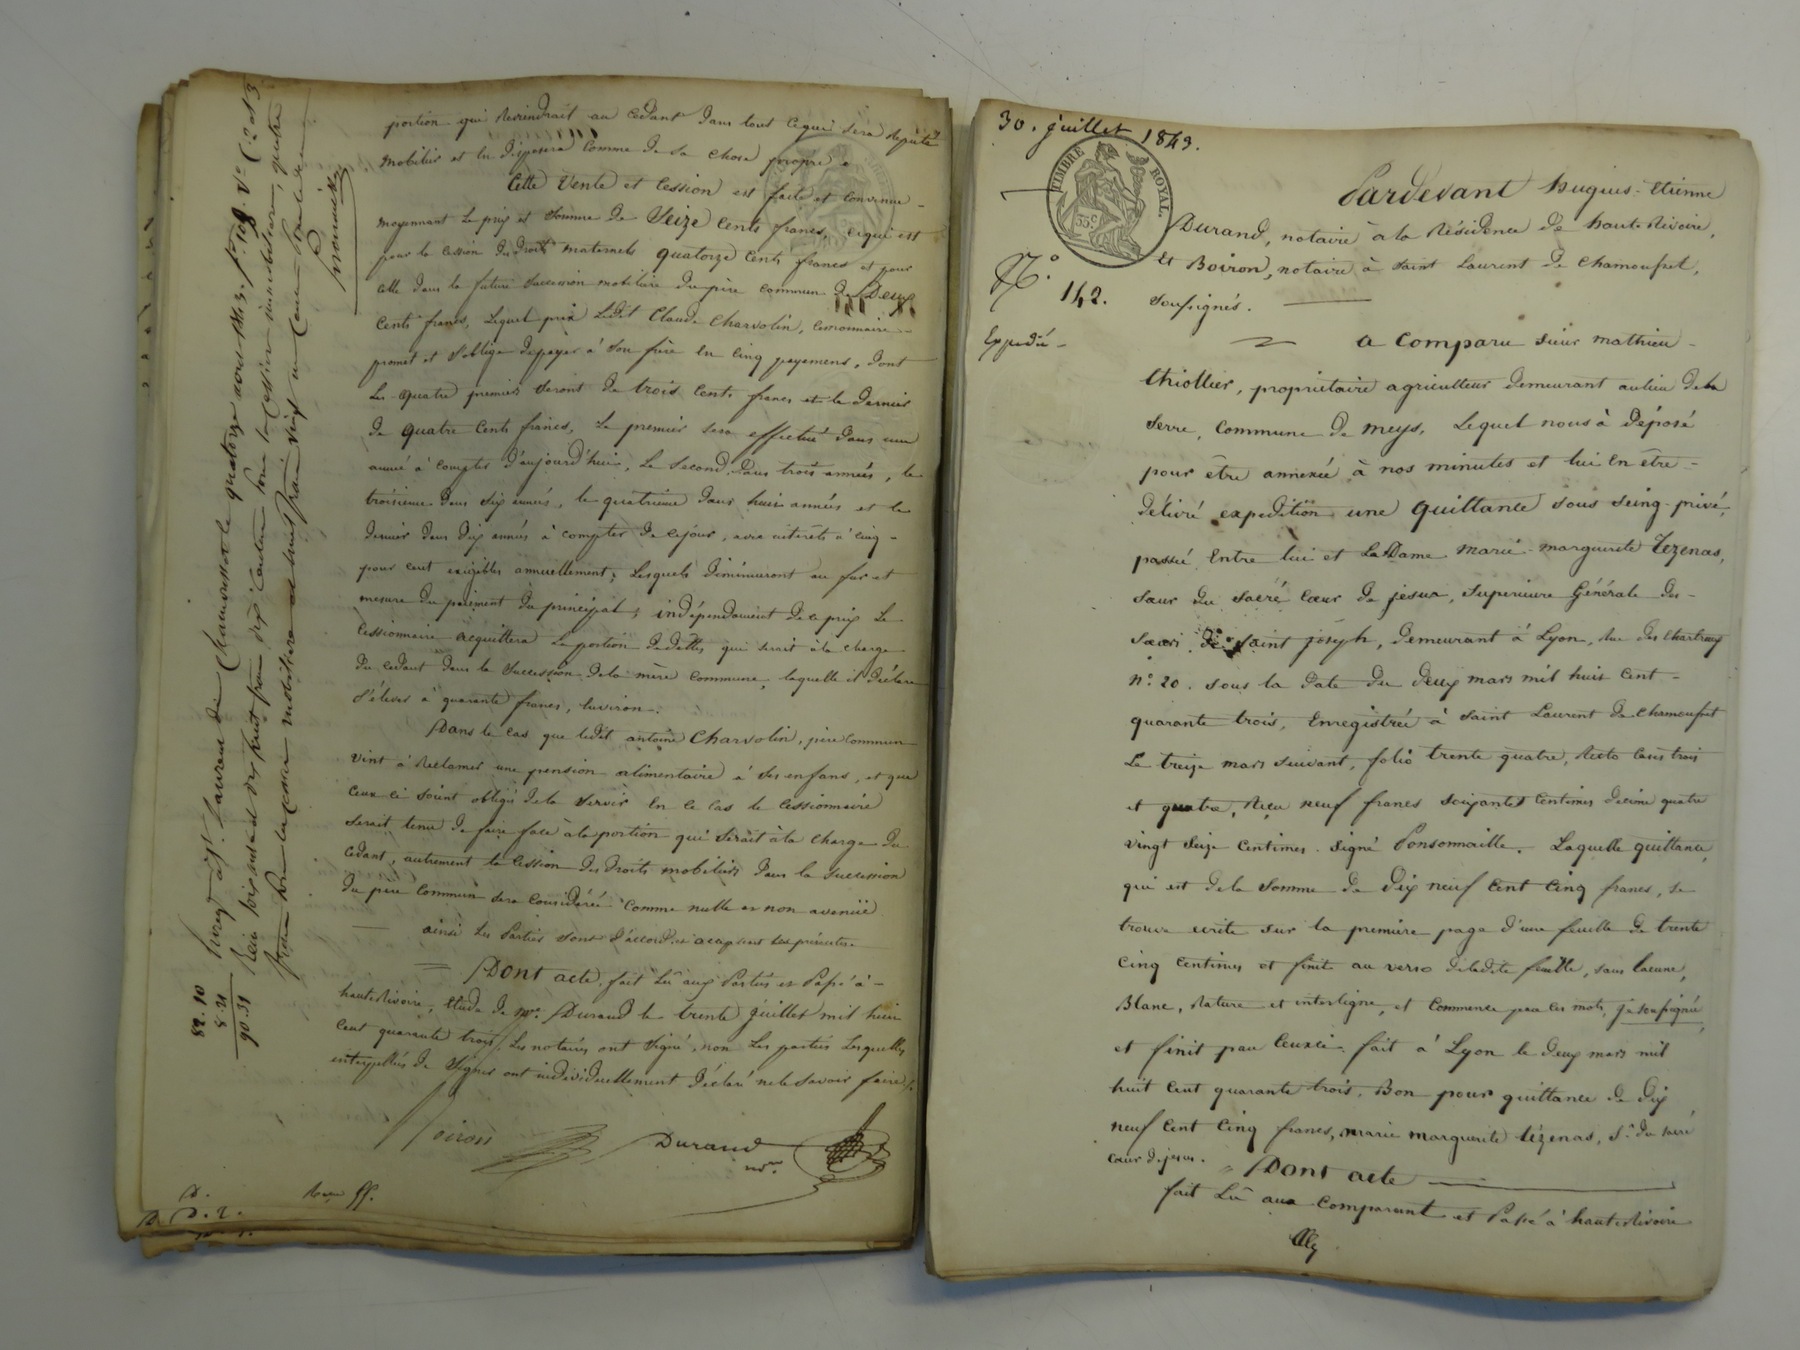 portion qui Reviendrait au Cédant dans tout cequi sera Réputé
mobilier et en disposera Comme de sa chose propre.
Cette Vente et Cession est faite et convenue
moyennant Le prix et Somme de Seize Cents francs, cequi est
pour la Cession des droits maternels quatorze Cents francs et pour
celle dans la future Succession mobiliaire du père commun de Deux
Cents francs, Lequel prix Ledit Claude Charvolin, Cessionnaire
promet et s'oblige de payer à Son frère en Cinq payemens, dont
Les quatre premiers seront de trois Cents francs et le dernier
de quatre Cents francs, Le premier sera effectué dans une
année à compter d'aujourd'hui, Le Second dans trois années, le
troisieme dans six années, le quatrieme dans huit années et le
dernier dans dix années à compter de cejour, avec intérêts à cinq
pour cent exigibles annuellement, Lesquels diminueront au fur et
mesure du paiement du principal; indépendament de ce prix Le
Cessionnaire acquittera La portion de dettes qui serait à la charge
du cedant dans la Succession de la mère commune, laquelle il déclare
s'élever à quarante francs, Environ.
Dans le cas que ledit antoine Charvolin, père Commun
vint à Reclamer une pension alimentaire à Ses enfans, et que
Ceux ci soient obligés de la Servir En ce cas le Cessionnaire
Serait tenu de faire face à la portion qui Serait à la charge du
cédant, autrement la Cession des droits mobiliers dans la succession
du père Commun sera Considérée Comme nulle et non avenue
ainsi Les Parties sont d'accord et acceptent Les présentes
Dont acte, fait Lû aux Parties et Passé à
haute Rivoire, étude de Me. Durand le trente juillet mil huit
Cent quarante trois. Les notaires ont Signé, non Les parties Lesquelles
interpellées de Signer ont individuellement déclaré ne le savoir faire
Boiron
Durand
nre.
D.
D. D. 2.
82. 10
8. 21
90. 31
Enreg. à St. Laurent de Chamousset le quatorze août 1843. fo. 108. Vo. C. 2 et 3
30. juillet 1843.
TIMBRE ROYAL.
35 c
No.
142.
Expédié
Pardevant hugues-Etienne
Durand, notaire à la Résidence de haute Rivoire,
Et Boiron, notaire à Saint Laurent de Chamousset,
soussignés.
a Comparu sieur mathieu
thiollier, propriétaire agriculteur demeurant au lieu de la
Serre, Commune de meys, Lequel nous à déposé
pour être annexée à nos minutes et lui En être
délivré expédition une quittance Sous Seing-privé,
passée Entre lui et La Dame marie-marguerite tezenas,
sœur du Sacré Cœur de jesus, Superieure Générale des
sœurs de saint joseph, demeurant à Lyon, Rue des Chartreux
no. 20. sous la date du deux mars mil huit Cent
quarante trois, Enregistrée à Saint Laurent de Chamousset
Le treize mars suivant, folio trente quatre, Recto Cases trois
et quatre, Reçu neuf francs soixante Centimes décime quatre
vingt Seize Centimes. Signé Ponsonnaille. Laquelle quittance,
qui est de la Somme de dix neuf Cent Cinq francs, se
trouve ecrite sur la première page d'une feuille de trente
Cinq Centimes et finit au verso de ladite feuille, sans lacune,
Blanc, Rature et interligne, et Commence par ces mots, je soussigné
et finit par Ceuxci: fait à Lyon le deux mars mil
huit Cent quarante trois. Bon pour quittance de dix
neuf Cent Cinq francs, marie marguerite tézenas, Sr. du sacré
cœur de jesus.
Dont acte
fait Lû aux Comparant et Passé à haute Rivoire